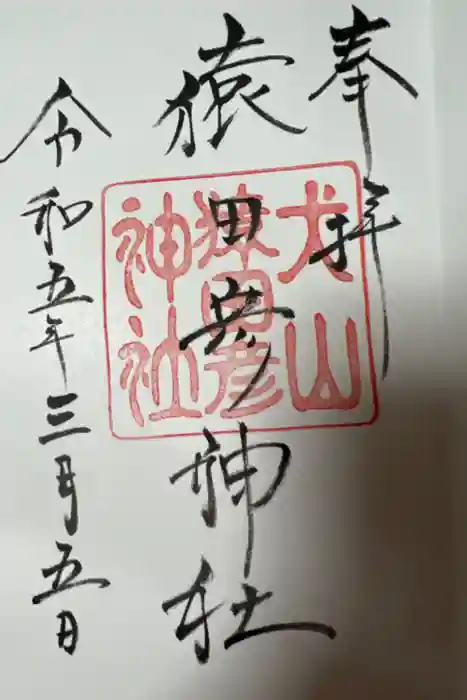 奉拝
犬山
猿田彦
神社
猿田彦神社
令和五年三月五日